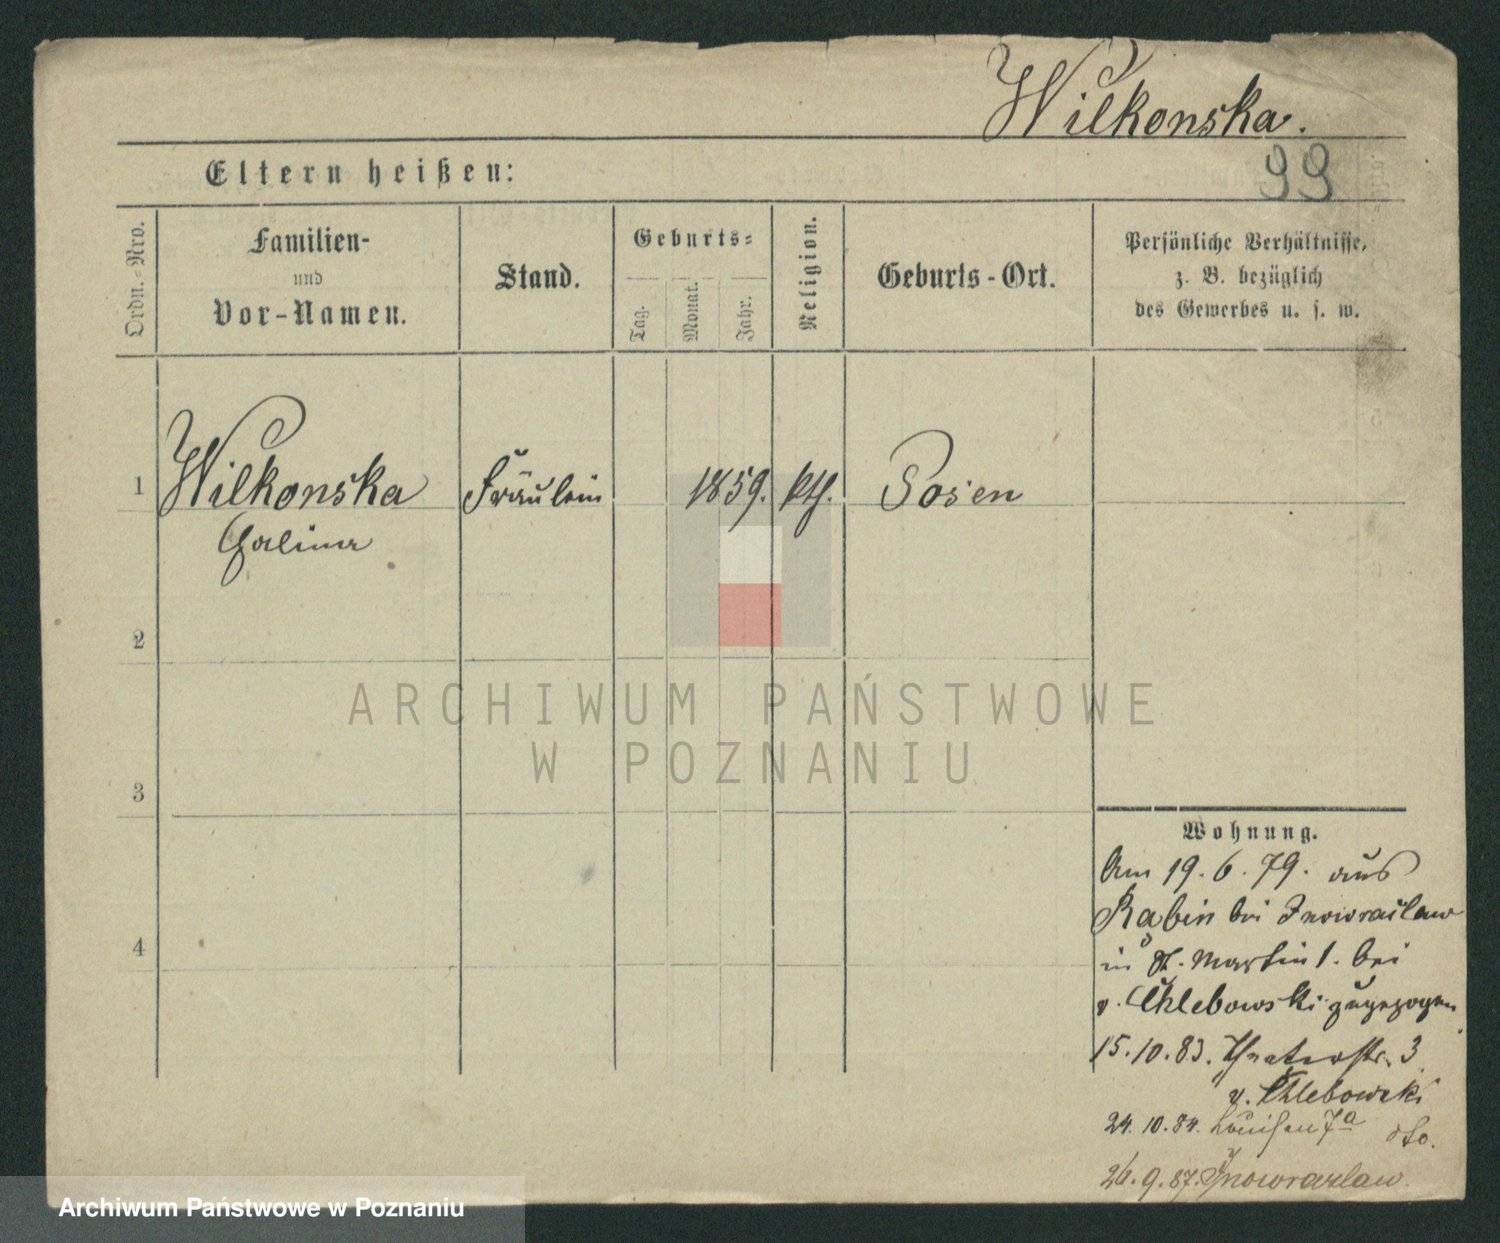 Wilkonska.
99
Eltern heißen:
Ordn.=Nro.
Familien-
und
Vor-Namen.
Stand.
Geburts=
Tag.
Monat.
Jahr.
Religion.
Geburts-Ort.
Persönliche Verhältnisse,
z. B. bezüglich
des Gewerbes u. s. w.
1 Wilkonska Fräulein 1859. kth. Posen
Halina
2
3
4
Wohnung.
Am 19.6.79. aus
Rabin bei Inowraclaw
in St. Martin 1. bei
v. Chlebowski zugezogen
15.10.83. Theaterstr. 3
v. Chlebowski
24.10.84. Louisen 7a dto.
26.9.87. Inowrazlaw.
ARCHIWUM PAŃSTWOWE
W POZNANIU
Archiwum Państwowe w Poznaniu